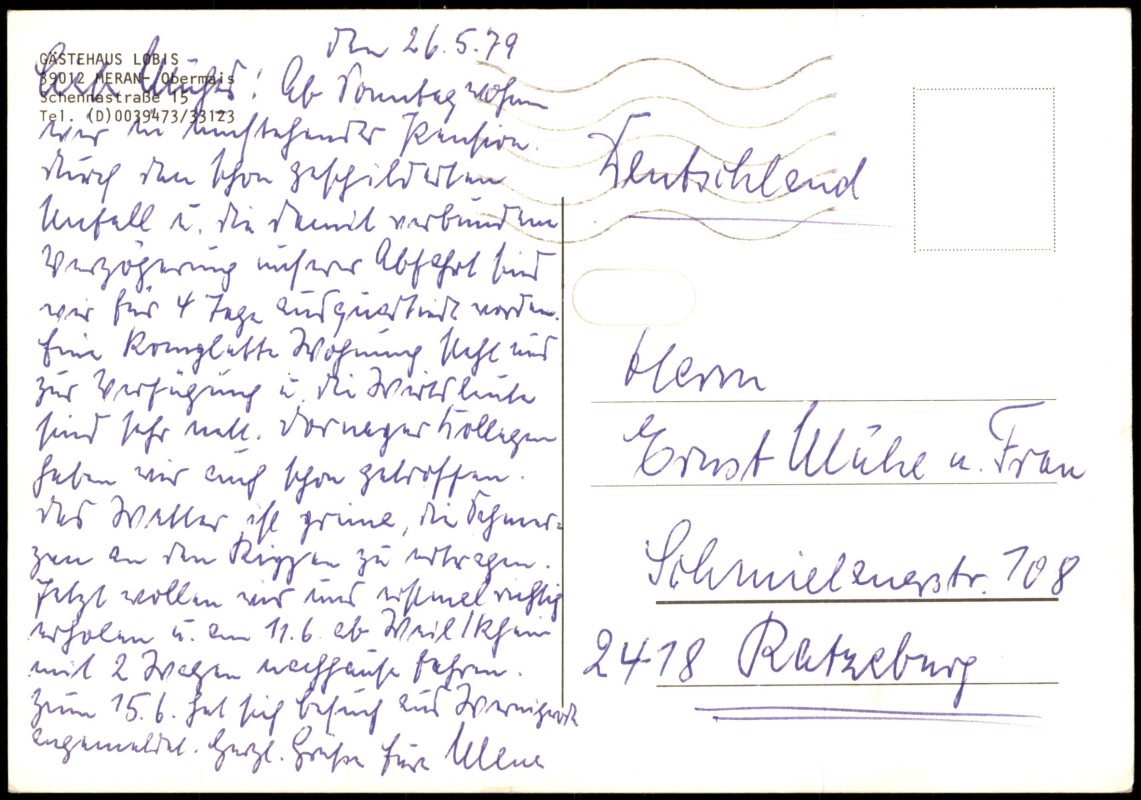 GÄSTEHAUS LOBIS
39012 MERAN- Obermais
Schennastraße 15
Tel. (D)0039473/33123
den 26.5.79
Liebe Mühes! Ab Sonntag wohnen
wir in umstehender Pension.
Durch den schon geschilderten
Unfall u. die damit verbundene
Verzögerung unserer Abfahrt sind
wir für 4 Tage ausquartiert worden.
Eine komplette Wohnung steht uns
zur Verfügung u. die Wirtsleute
sind sehr nett. Kollegen
haben wir auch schon getroffen.
Das Wetter ist prima, die Schmer-
zen an den Rippen zu ertragen.
Jetzt wollen wir uns erstmal richtig
erholen u. am 11.6. ab Weil/Rhein
mit 2 Wagen nachhause fahren.
Zum 15.6. hat sich Besuch aus Wernigerode
angemeldet. Herzl. Grüße Eure
Deutschland
Herrn
Ernst Mühe u. Frau
Schmielauerstr. 108
2418 Ratzeburg